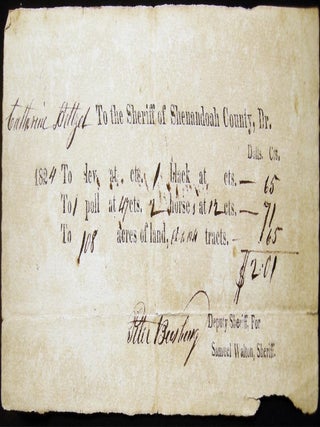 Catharine To the Sheriff of Shenandoah County, Dr.
Dolls. Cts.
1824 To lev. at cts. 1 black at cts. — 65
To 1 poll at 47 cts. 2 horses at 12 cts. — 71
To 108 acres of land, tracts. — 65
$2.01
Peter
Deputy Sheriff. For
Samuel Walton, Sheriff.